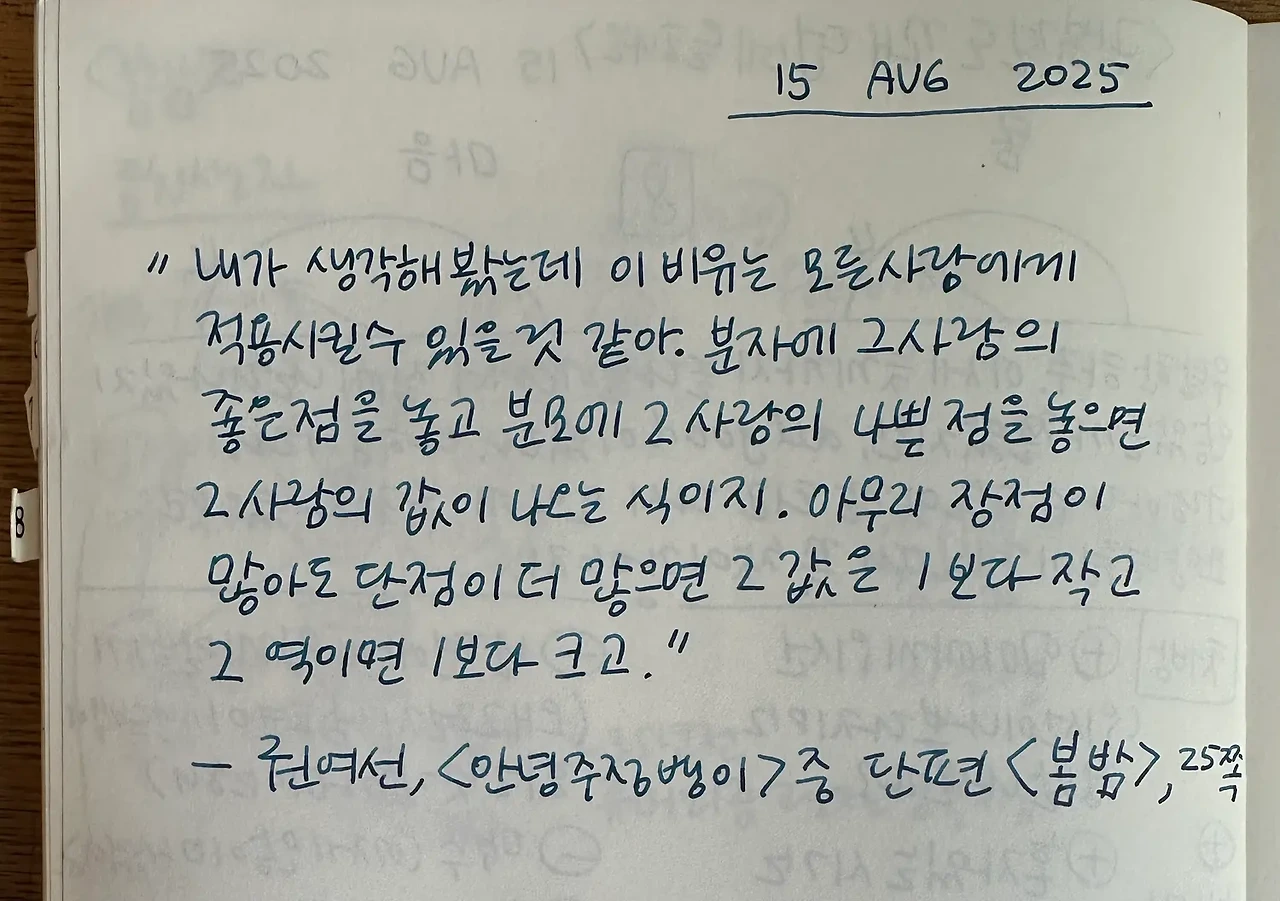 15 AUG 2025
" 내가 생각해봤는데 이 비유는 모든사람에게
적용시킬수 있을것 같아. 분자에 그사람의
좋은점을 놓고 분모에 그 사람의 나쁜 점을 놓으면
그 사람의 값이 나오는 식이지. 아무리 장점이
많아도 단점이 더 많으면 그 값은 1보다 작고
그 역이면 1보다 크고."
- 권여선, <안녕주정뱅이> 중 단편 <봄밤>, 25쪽
8